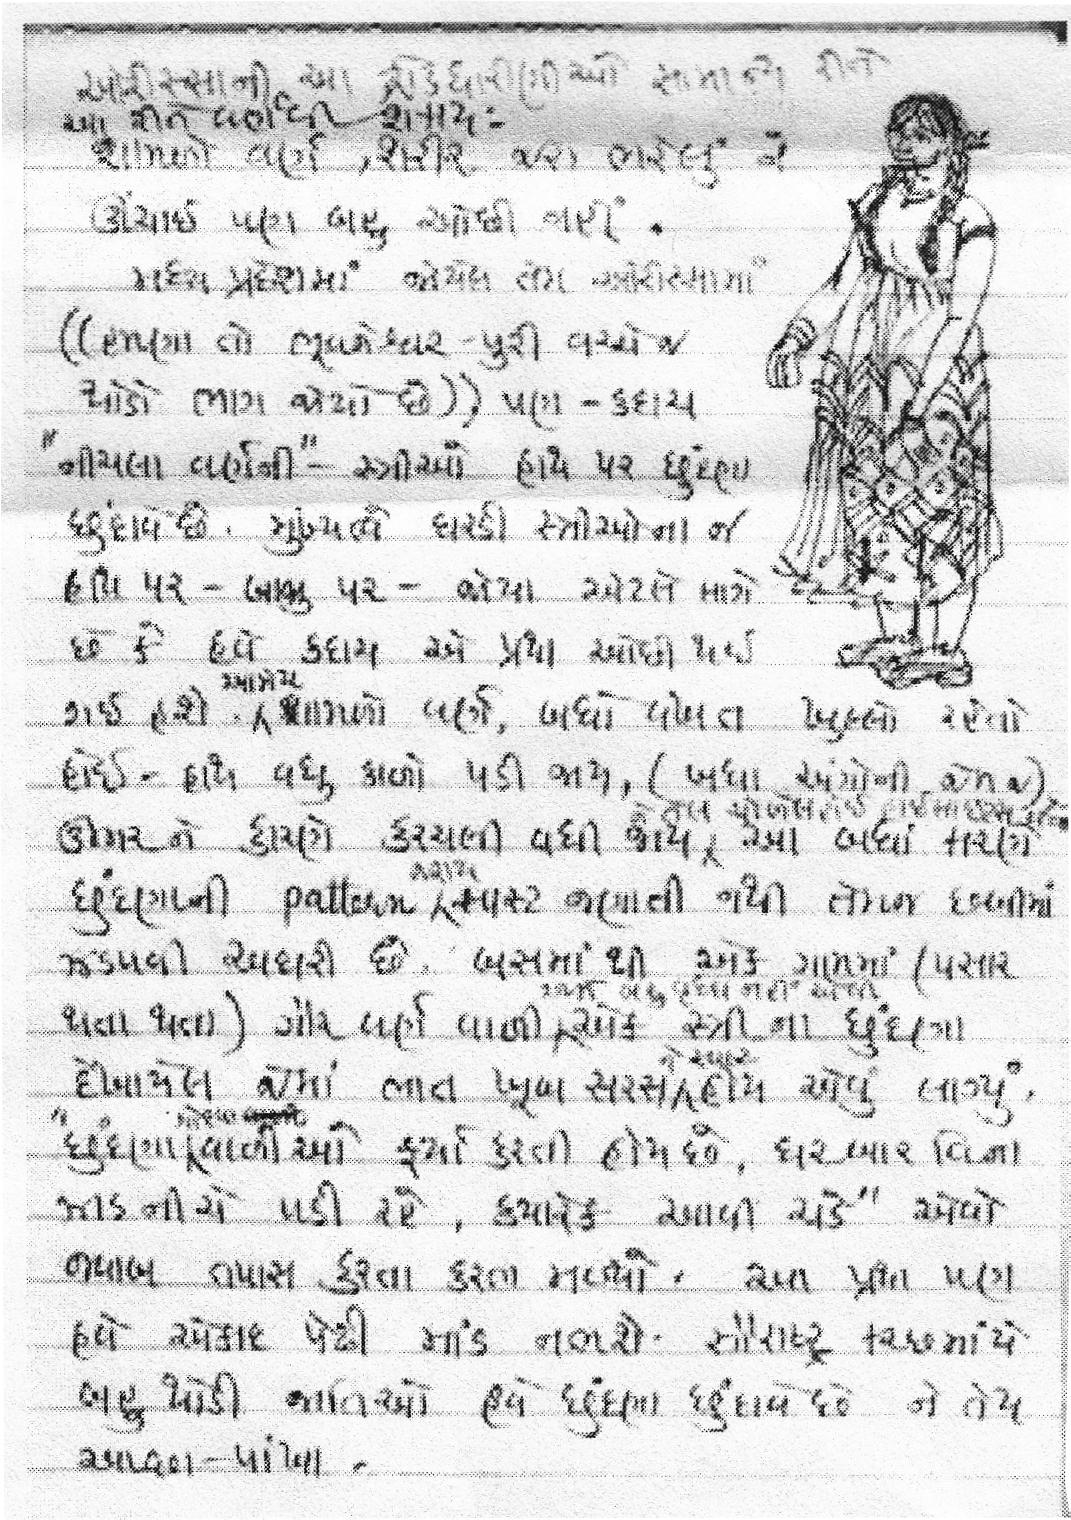 ઓરીસ્સાની આ ક્રોડેધારીણીઓ સામાન્ય રીતે
આ રીતે વર્ણવી શકાય:-
શામળો વર્ણ, શરીર જરા ભરેલું ને
ઊંચાઈ પણ બહુ ઓછી નહીં.
મધ્ય પ્રદેશમાં જોયેલ તેમ ઓરીસ્સામાં
((હમણા તો ભૂવનેશ્વર-પુરી વચ્ચે જ
થોડો ભાગ જોયો છે)) પણ - કદાચ
"નીચલા વર્ણની" - સ્ત્રીઓ હાથ પર છુંદણા
છુંદાવે છે. મુખ્યત્વે ઘરડી સ્ત્રીઓના જ
હાથ પર - બાજુ પર - જોયા એટલે લાગે
છે કે હવે કદાચ એ પ્રથા ઓછી થઈ
ગઈ હશે. આમેય શામળો વર્ણ, બધો વખત ખુલ્લો રહેતો
હોઈ - હાથ વધુ કાળો પડી જાય, (બધા અંગોની જેમ જ)
ને તેલ ચોળેલ હોઈ
ઊમર ને કારણે કરચલી વધી જાય, આ બધાં કારણે
છુંદણાની pattern જરાય સ્પષ્ટ જણાતી નથી તેમજ છબીમાં
ઝડપવી અઘરી છે. બસમાં થી એક ગામમાં (પસાર
થતા થતા) ગૌર વર્ણ વાળી બહુ વૃધ્ધ નહીં એવી એક સ્ત્રી ના છુંદણા
દેખાયેલ જેમાં ભાત ખૂબ સરસ ને સ્પષ્ટ હોય એવું લાગ્યું.
"છુંદણા વાળીઓ ફર્યા કરતી હોય છે, ઘરબાર વિના
ઝાડ નીચે પડી રહે, ક્યારેક આવી ચડે" એવો
જવાબ તપાસ કરતા કરતા મળ્યો. આ પ્રથા પણ
હવે એકાદ પેઢી માંડ નભશે. સૌરાષ્ટ્ર કચ્છમાંયે
બહુ થોડી જાતિઓ હવે છુંદણા છુંદાવે છે ને તેય
આછા-પાંખા.